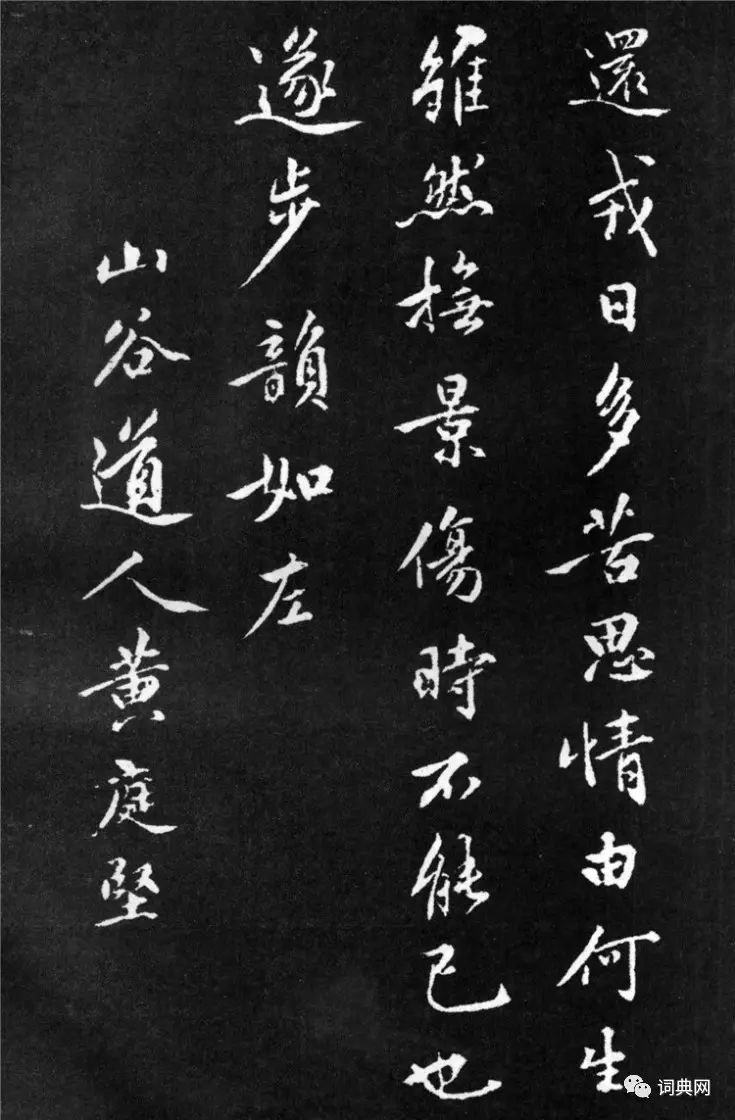 還戎日多苦思情由何生
雖然撫景傷時不能已也
遂步韻如左
山谷道人黄庭堅
词典网